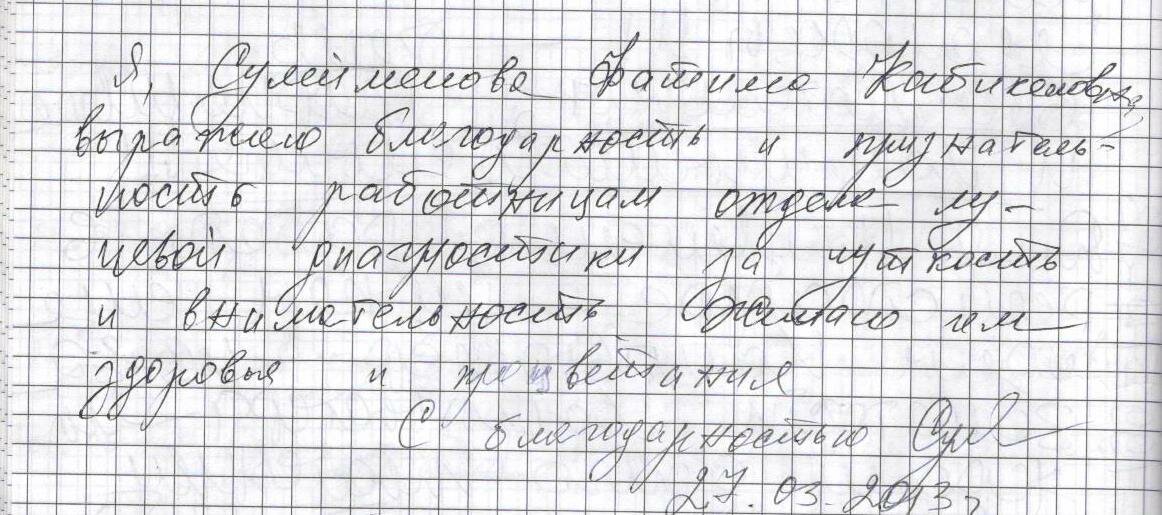 Я, Сулейменова Фатима Кабикеновна,
выражаю благодарность и признатель-
ность работницам отдела лу-
чевой диагностики за чуткость
и внимательность Желаю им
здоровья и процветания
С благодарностью Сул
27.03.2013г